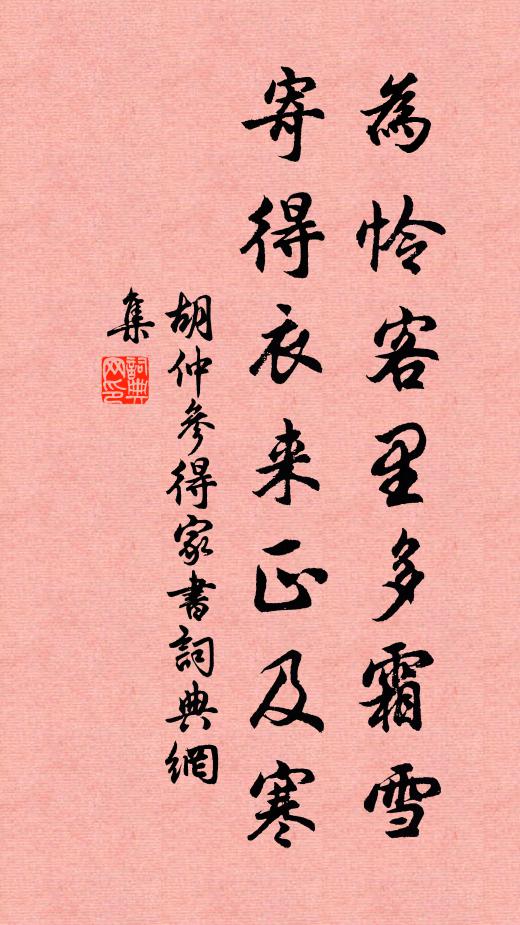 為怜客里多霜雪
寄得衣来正及寒
胡仲參得家書詞典網
集
詞典
网印